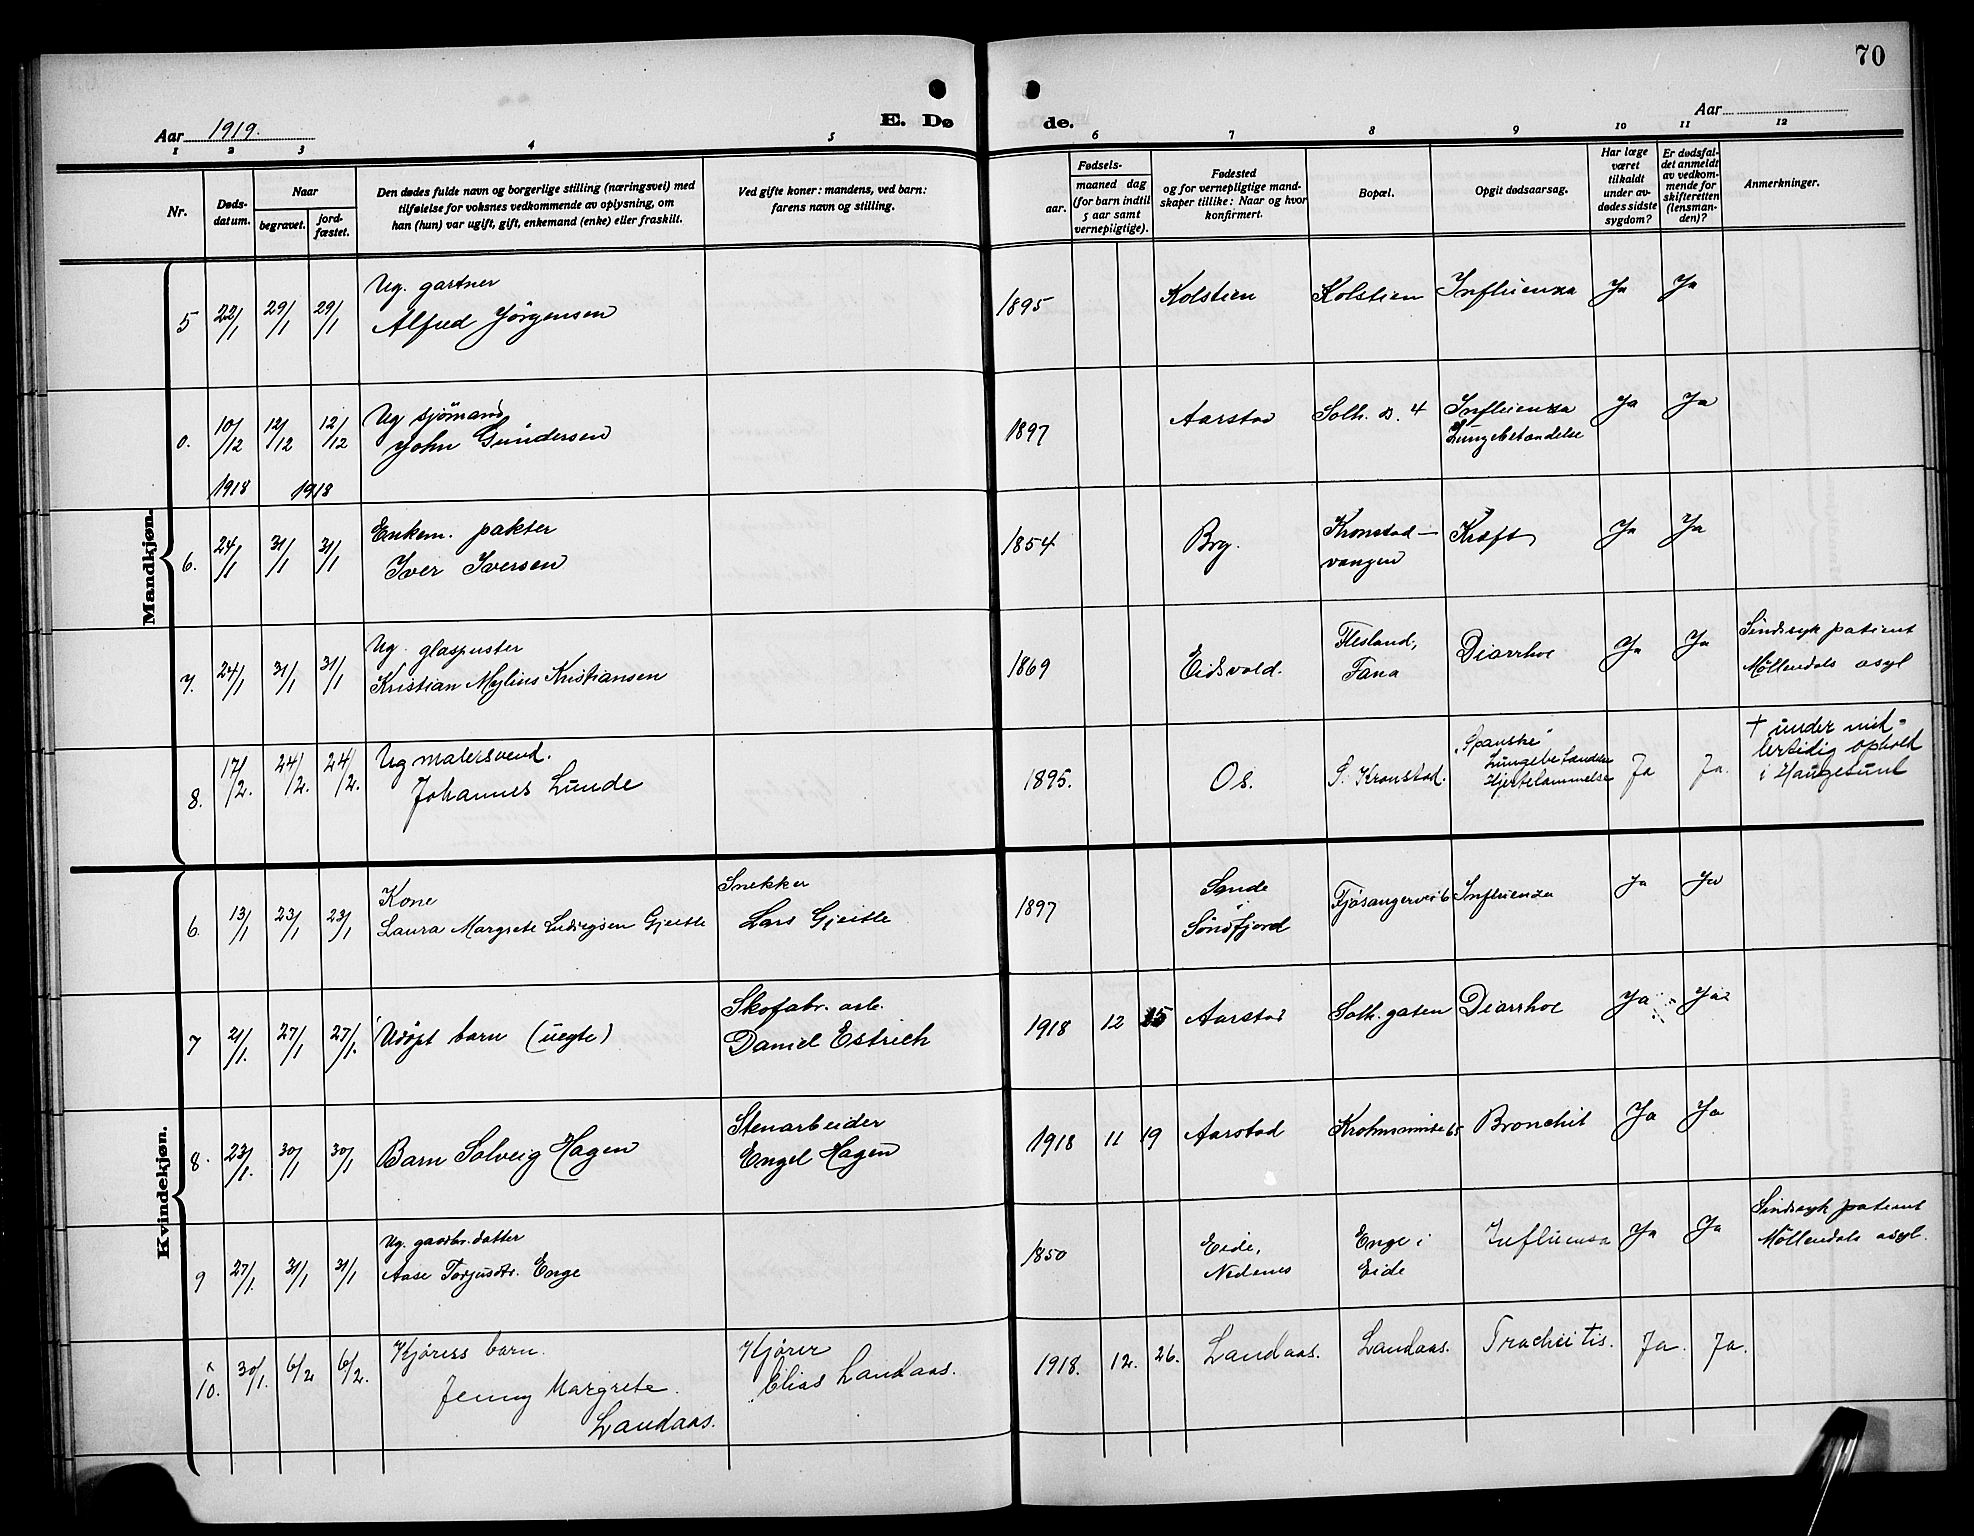 70
Aar 1919.
E. Dø
de.
Aar
1 2 3 4 5 6 7 8 9 10 11 12
Nr.
Døds-
datum.
Naar
begravet.
jord-
fæstet.
Den dødes fulde navn og borgerlige stilling (næringsvei) med
tilføielse for voksnes vedkommende av oplysning, om
han (hun) var ugift, gift, enkemand (enke) eller fraskilt.
Ved gifte koner: mandens, ved barn:
farens navn og stilling.
Fødsels-
aar.
maaned dag
(for barn indtil
5 aar samt
vernepligtige).
Fødested
og for vernepligtige mand-
skaper tillike: Naar og hvor
konfirmert.
Bopæl.
Opgit dødsaarsag.
Har læge
været
tilkaldt
under av-
dødes sidste
sygdom?
Er dødsfal-
det anmeldt
av vedkom-
mende for
skifteretten
(lensman-
den)?
Anmerkninger.
Mandkjøn.
Ug. gartner
5 22/1 29/1 29/1 Alfred Jörgensen 1895 Kolstien Kolstien Influensa Ja Ja
Ug sjömand
0. 10/12 12/12 12/12 John Gundersen 1897 Aarstad Solh. B. 4 Influensa Ja Ja
Lungebetændelse
1918 1918
Enkem. pakter
6. 24/1 31/1 31/1 Iver Iversen 1854 Brg. Kronstad-
vangen Kræft Ja Ja
Ug. glaspuster
7. 24/1 31/1 31/1 Kristian Mylius Kristiansen 1869 Eidsvold. Flesland,
Fana Diarrhoe Ja Ja Sindssyk patient
Möllendals asyl
Ug malersvend.
8. 17/2. 24/2. 24/2. Johannes Lunde 1895. Os. S. Kronstad. "Spanske"
Lungebetændelse
Hjertelammelse Ja Ja. † under mid-
lertidig ophold
i Haugesund
Kvindekjøn.
Kone Snekker
6. 13/1 23/1 23/1 Laura Margrete Ludvigsen Gjeitle Lars Gjeitle 1897 Sande
Söndfjord Fjösangervei 6 Influensa Ja Ja
Skofabr. arb.
7 21/1. 27/1 27/1. Udöpt barn (uegte) Daniel Estrich 1918 12 15 Aarstad Solh. gaten Diarrhoe Ja Ja
Stenarbeider
8. 23/1. 30/1 30/1 Barn Solveig Hagen Engel Hagen 1918 11 19 Aarstad Krohnsminde 65 Bronchit Ja Ja
Ug. gaardbr. datter
9 27/1. 31/1 31/1 Aase Torjusdtr. Enge 1850 Eide,
Nedenes Enge i
Eide Influensa Ja Ja Sindssyk patient
Möllendals asyl.
Kjörers barn. Kjörer
10. 30/1. 6/2 6/2. Jenny Margrete Elias Landaas. 1918. 12. 26. Landaas. Landaas. Tracheitis. Ja. Ja.
Landaas.